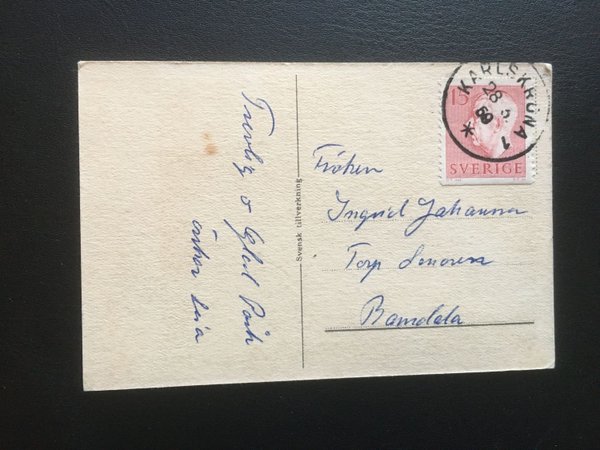 Trevlig o Glad Påsk
önskar Lisa
Svensk tillverkning
KARLSKRONA 1
28 3 59
15
SVERIGE
Fröken
Ingrid Johanna
Torp
Ramdala